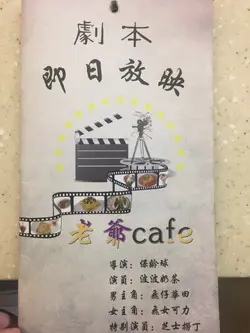 劇本
即日放映
老爺cafe
導演：保齡球
演員：波波奶茶
男主角：燕仔華田
女主角：燕女可力
特別演員：芝士撈丁